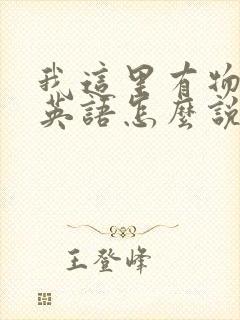 我這里有物
英語怎麼說
王登峰